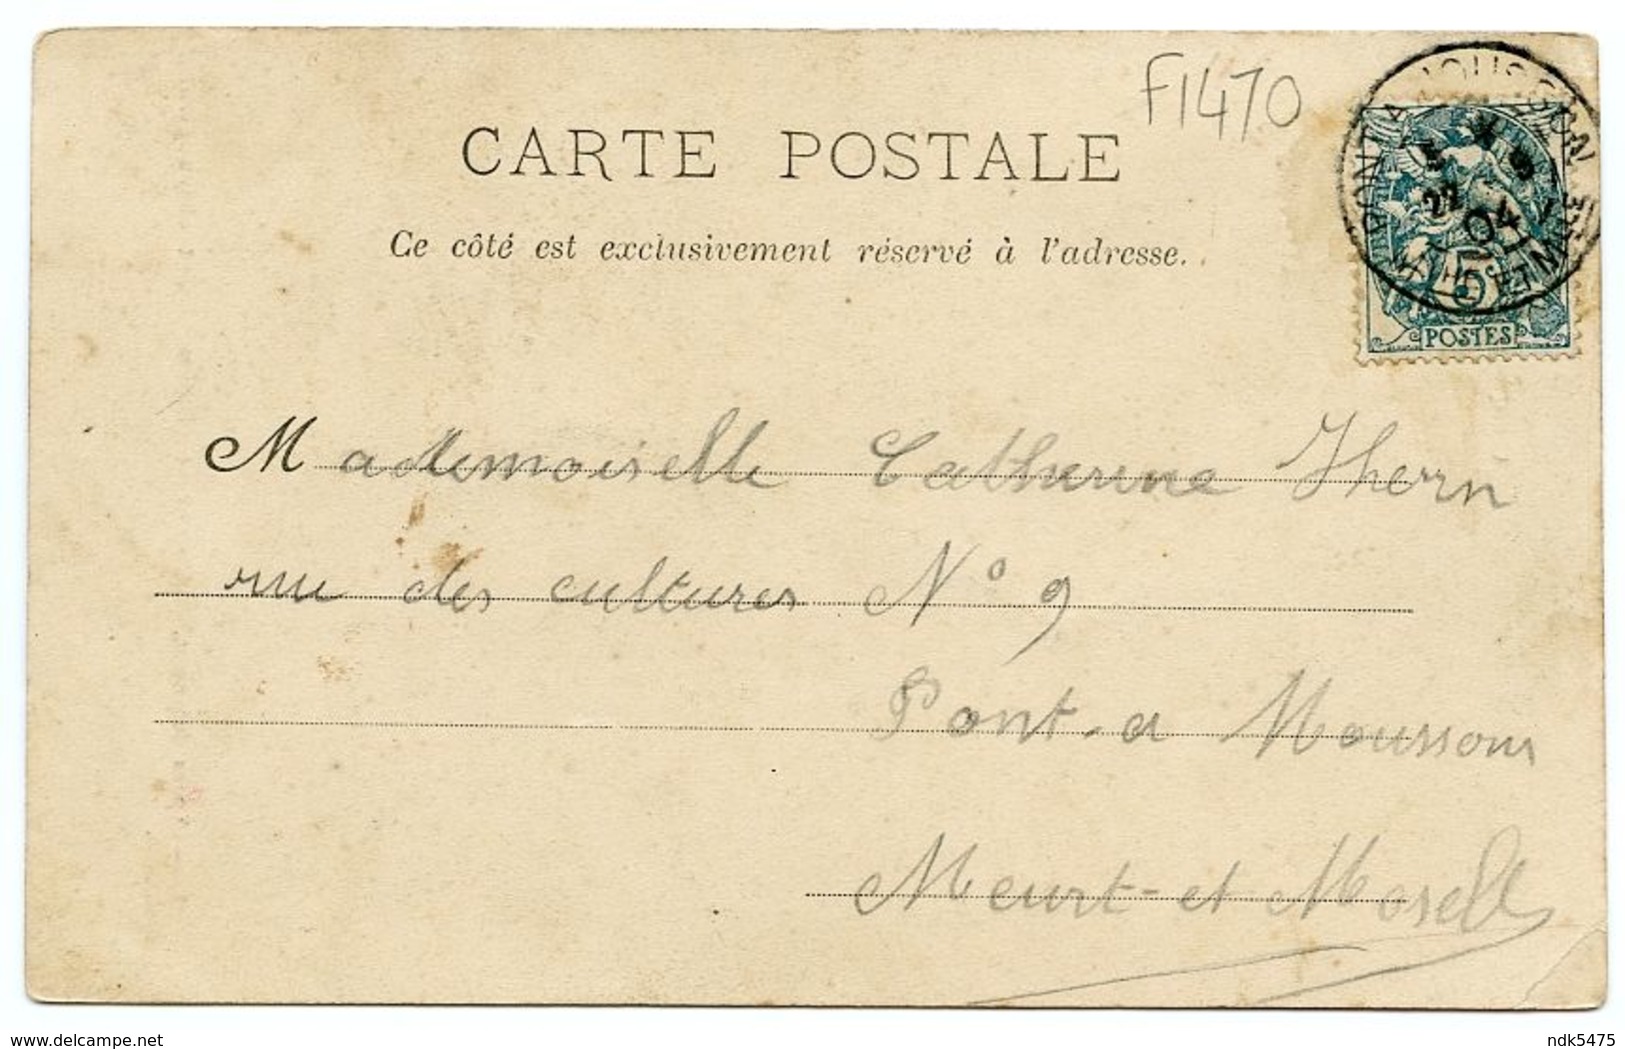 F1470
CARTE POSTALE
Ce côté est exclusivement réservé à l'adresse.
PONT-A-MOUSSON
22
04
MTHE-ET-MLLE
5
POSTES
Mademoiselle Catherine Jherin
rue des cultures N° 9
Pont-a Moussons
Meurt-et Moselle
www.delcampe.net
ndk5475